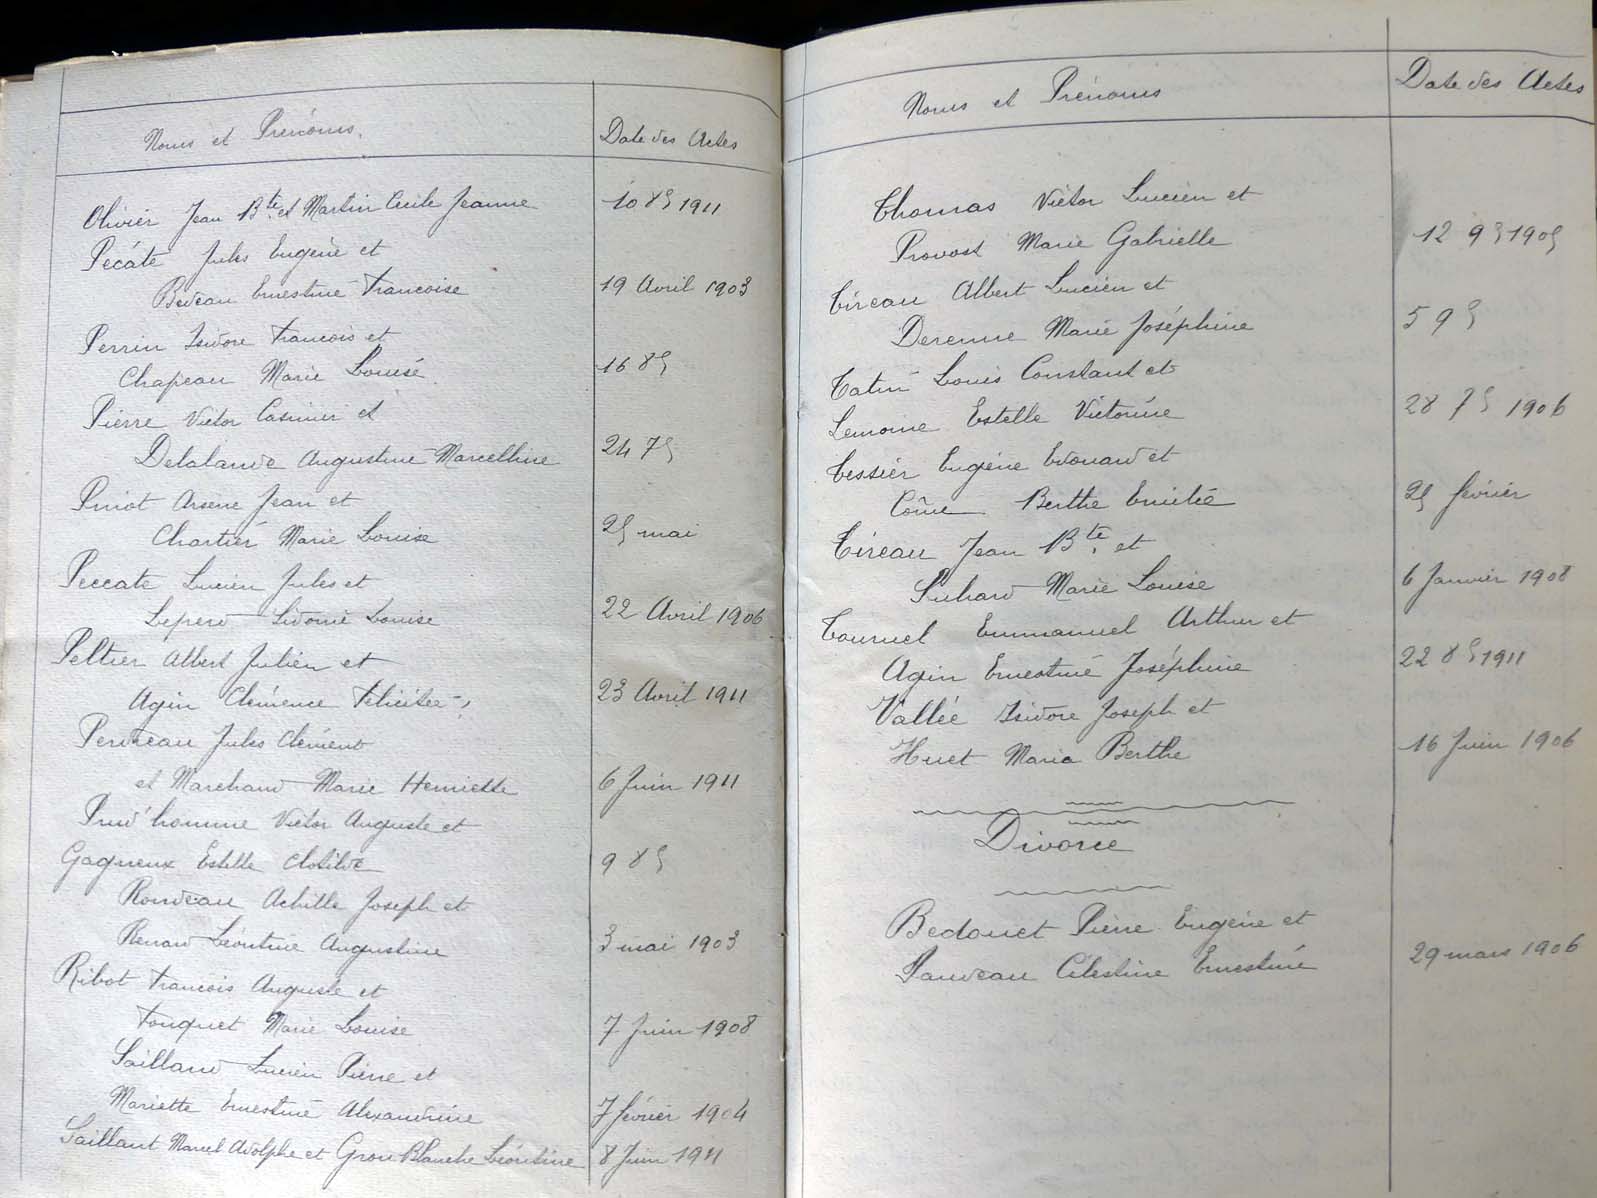 Noms et Prénoms. Date des Actes
Olivier Jean Bte et Martin Cécile Jeanne 10 8bre 1911
Pécate Jules Eugène et
Bedeau Ernestine Francoise 19 Avril 1903
Perrin Isidore Francois et
Chapeau Marie Louise 16 8bre
Pierre Victor Casimir et
Delalande Augustine Marcelline 24 7bre
Piniot Arsene Jean et
Chartier Marie Louise 25 mai
Peccate Lucien Jules et
Leperd Sidonie Louise 22 Avril 1906
Peltier Albert Julien et
Agin Clémence Félicitée 23 Avril 1911
Perdreau Jules Clément
et Marchand Marie Henriette 6 Juin 1911
Prud'homme Victor Auguste et
Gagneux Estelle Clotilde 9 8bre
Rondeau Achille Joseph et
Renard Léontine Augustine 3 mai 1903
Ribot Francois Auguste et
Fouquet Marie Louise 7 Juin 1908
Saillard Lucien Pierre et
Mariette Ernestine Alexandrine 7 février 1904
Saillant Marcel Adolphe et Grou Blanche Léontine 8 Juin 1911
Noms et Prénoms Date des Actes
Thomas Victor Lucien et
Provost Marie Gabrielle 12 9bre 1905
Tireau Albert Lucien et
Derenne Marie Joséphine 5 9bre
Tatin Louis Constant et
Lemoine Estelle Victorine 28 7bre 1906
Tessier Eugène Edouard et
Côme Berthe Emilie 25 février
Tireau Jean Bte et
Suhard Marie Louise 6 Janvier 1908
Tournel Emmanuel Arthur et
Agin Ernestine Joséphine 22 8bre 1911
Vallée Isidore Joseph et
Huet Maria Berthe 16 Juin 1906
Divorce
Bedouet Pierre Eugène et
Landeau Célestine Ernestine 29 mars 1906